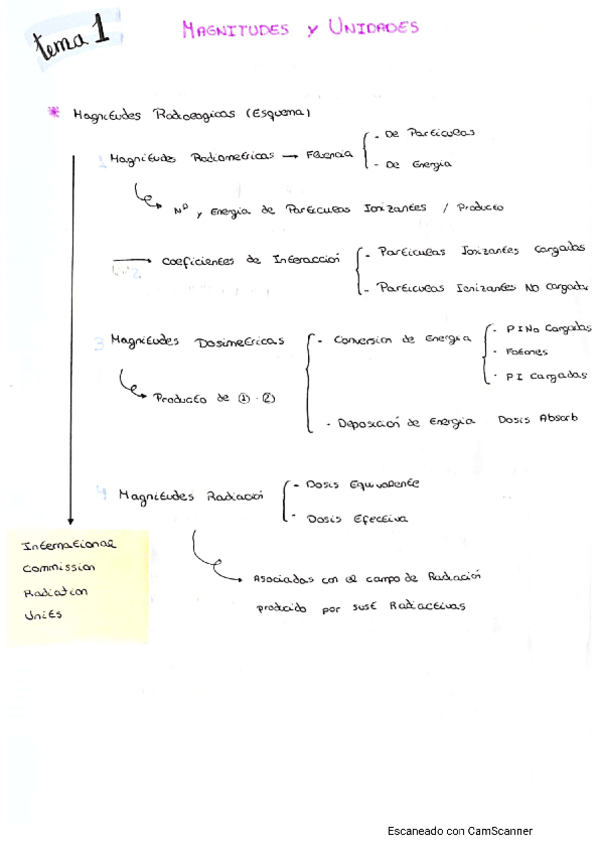 tema 1
MAGNITUDES Y UNIDADES
* Magnitudes Radiologicas (Esquema)
1 Magnitudes Radiometricas → Fluencia
- De Particulas
- De Energia
Nº y Energia de Particulas Ionizantes / Producto
2 → Coeficientes de Interacción
- Particulas Ionizantes Cargadas
- Particulas Ionizantes NO Cargadas
3 Magnitudes Dosimetricas
- Conversion de Energia
- PI No Cargadas
- Fotones
- PI Cargadas
Producto de ① · ②
- Deposición de Energia Dosis Absorb
4 Magnitudes Radiación
- Dosis Equivalente
- Dosis Efectiva
Asociadas con el campo de Radiación
producido por sust Radiactivas
International
Commission
Radiation
Units
Escaneado con CamScanner